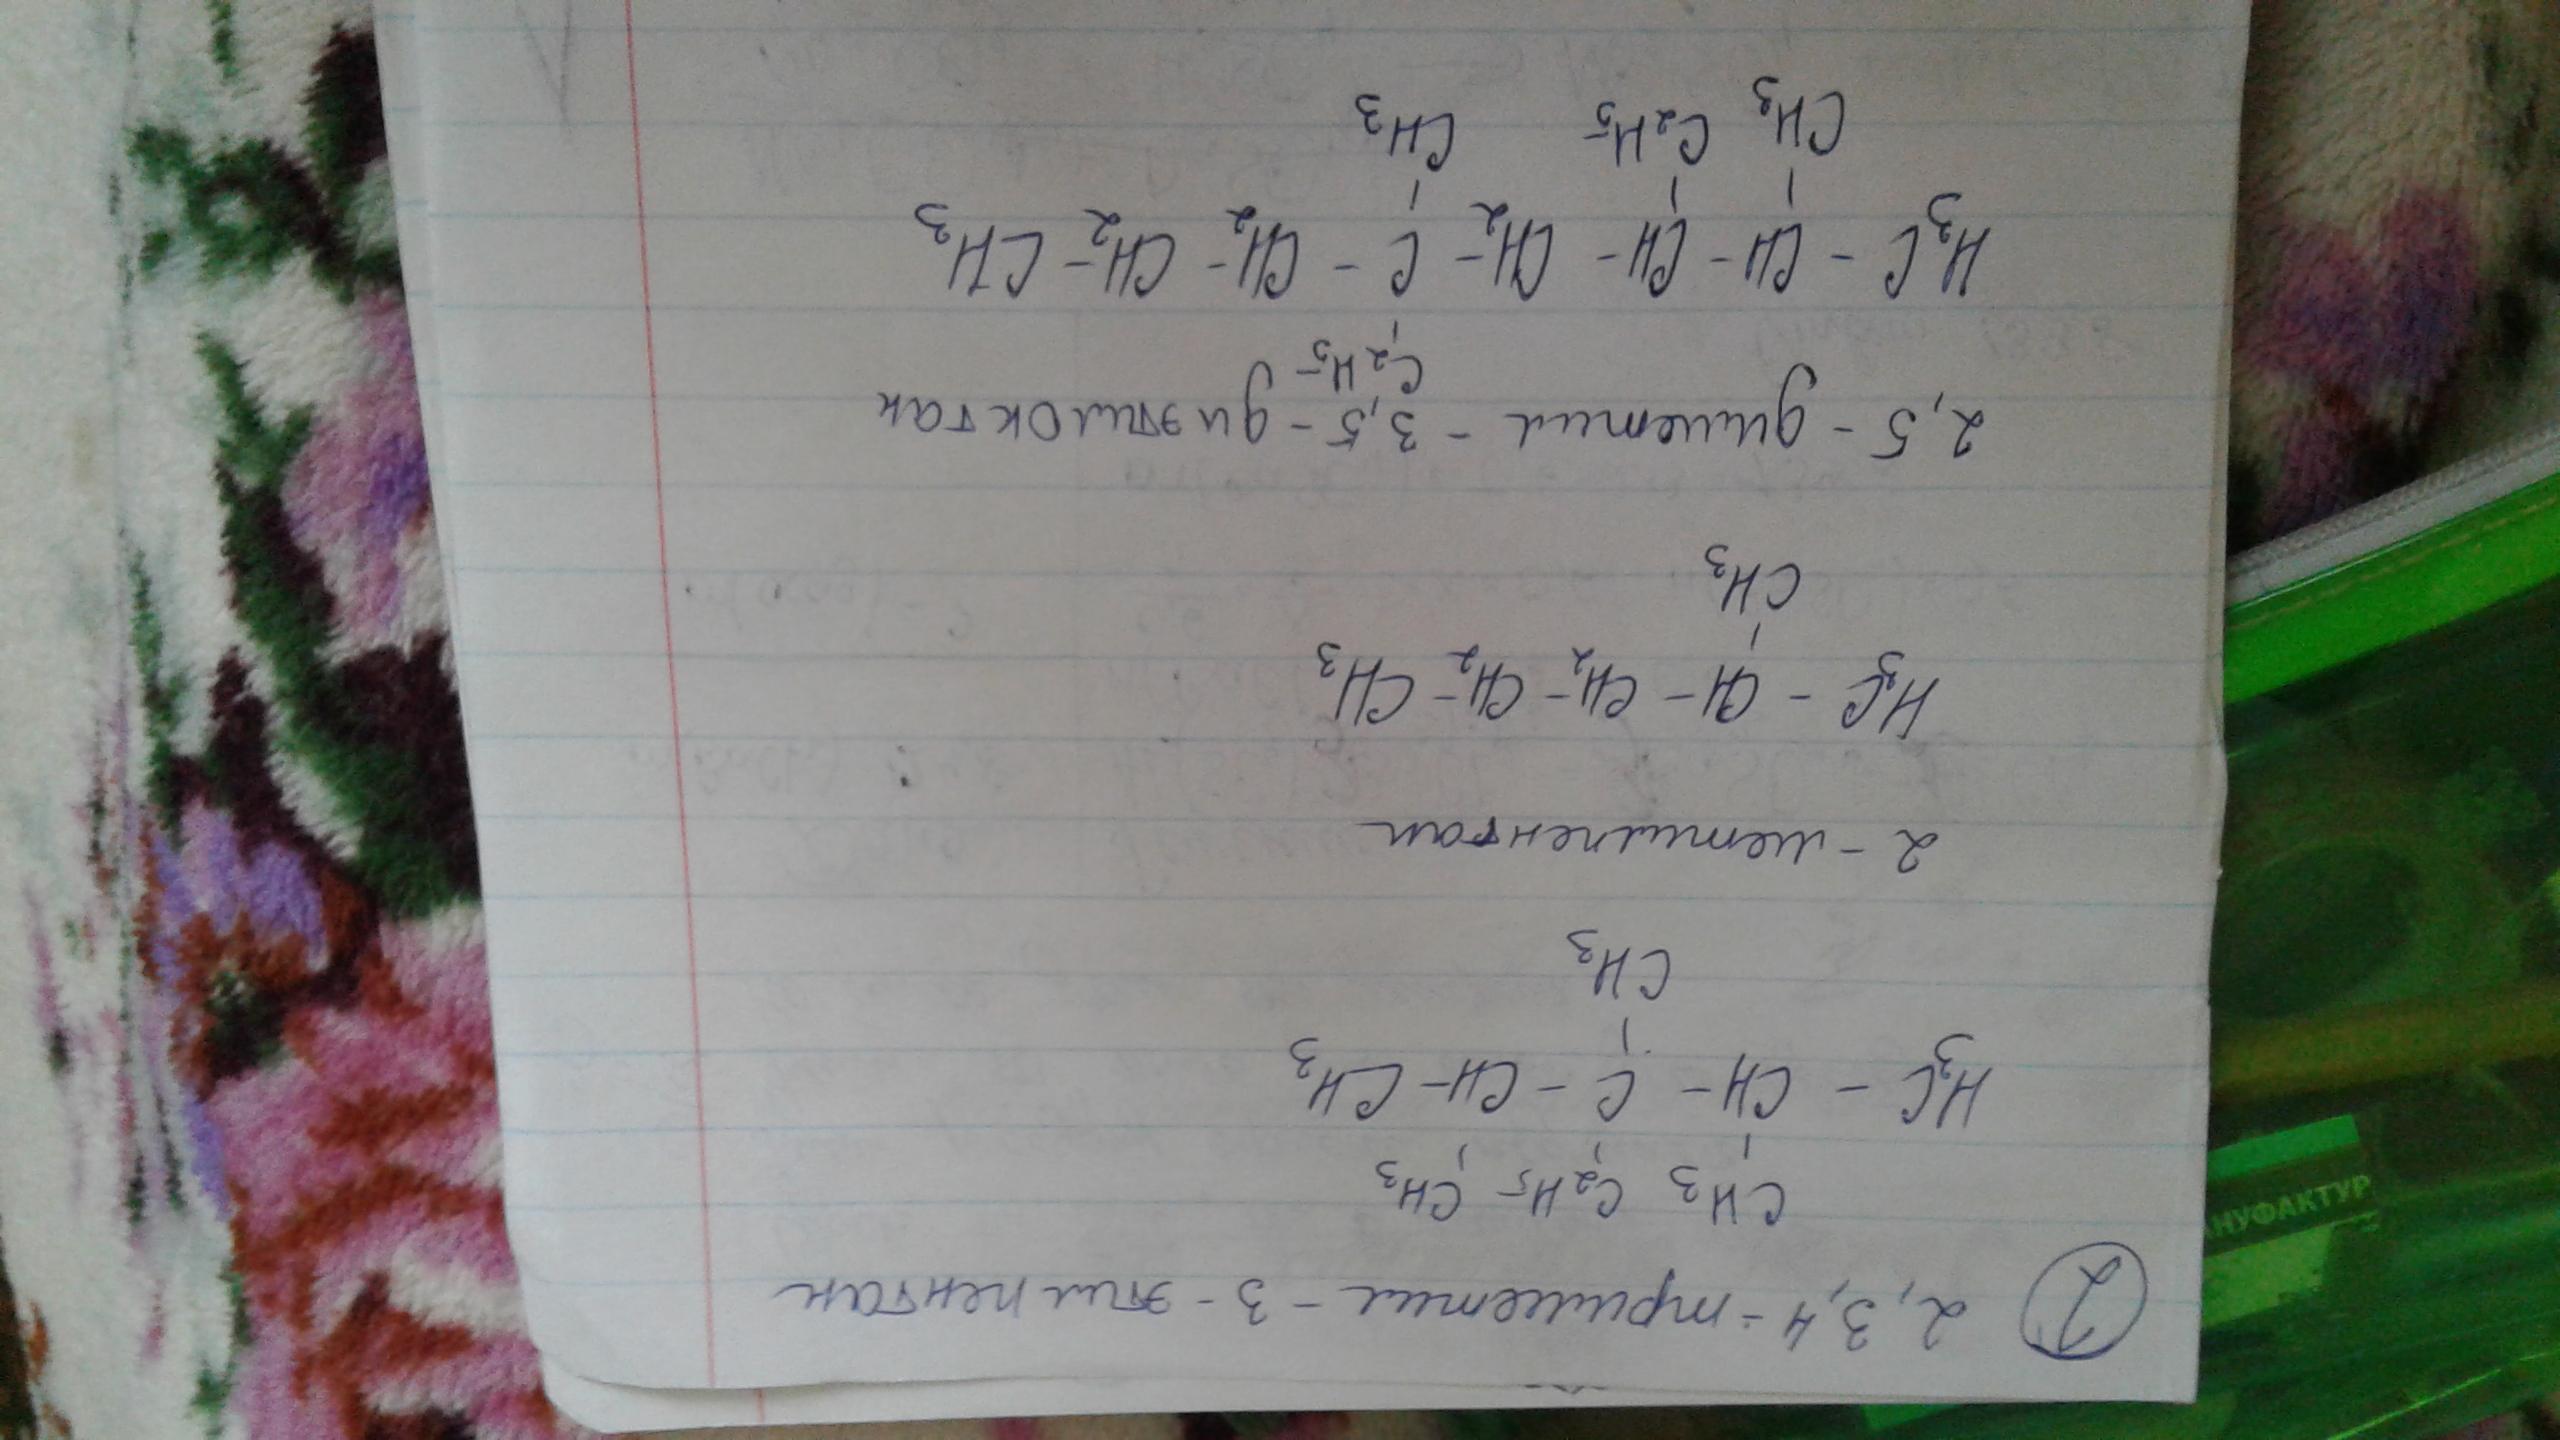 2
2,3,4-триметил - 3 - этилпентан
CH3 C2H5 CH3
H3C - CH - C - CH - CH3
CH3
2 - метилпентан
H3C - CH - CH2 - CH2 - CH3
CH3
2,5 - диметил - 3,5 - диэтилоктан
C2H5
H3C - CH - CH - CH2 - C - CH2 - CH2 - CH3
CH3 C2H5 CH3
НУФАКТУР